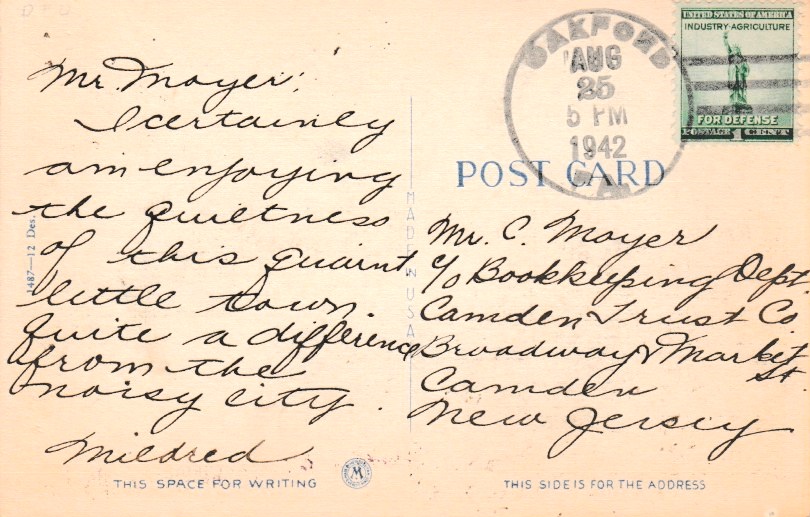 Mr. Moyer:
I certainly
am enjoying
the quietness
of this quaint
little town.
Quite a difference
from the
noisy city.
Mildred
THIS SPACE FOR WRITING
M
1487—12 Des.
MADE IN USA
POST CARD
OAXFORD
AUG
25
5 PM
1942
PA.
UNITED STATES OF AMERICA
INDUSTRY-AGRICULTURE
FOR DEFENSE
POSTAGE 1 CENT
Mr. C. Moyer
c/o Bookkeeping Dept.
Camden Trust Co.
Broadway & Market
St.
Camden
New Jersey
THIS SIDE IS FOR THE ADDRESS